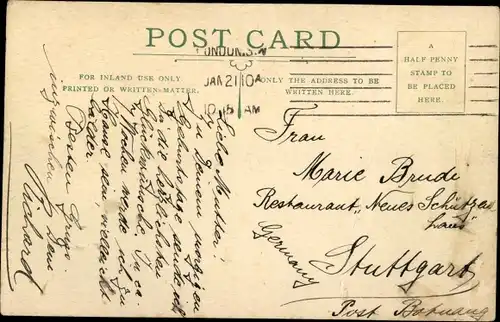 POST CARD
FOR INLAND USE ONLY
PRINTED OR WRITTEN MATTER.
ONLY THE ADDRESS TO BE
WRITTEN HERE.
A
HALF PENNY
STAMP TO
BE PLACED
HERE.
LONDON. S.W
JAN 21 10A
10.15 AM
Liebe Mutter!
Zu Deinem morgigen
Geburtstage sende ich
Dir die herzlichsten
Glückwünsche. In ca
Wochen werde ich zu
Hause sein, vielleicht
Besten Gruss
Dein
Richard
Frau
Marie Brude
Restaurant „Neues Schützen
haus"
Stuttgart
Germany
Post Botnang